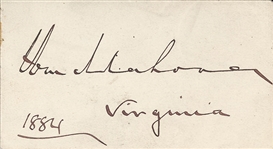 Wm Mahone
Virginia
1884